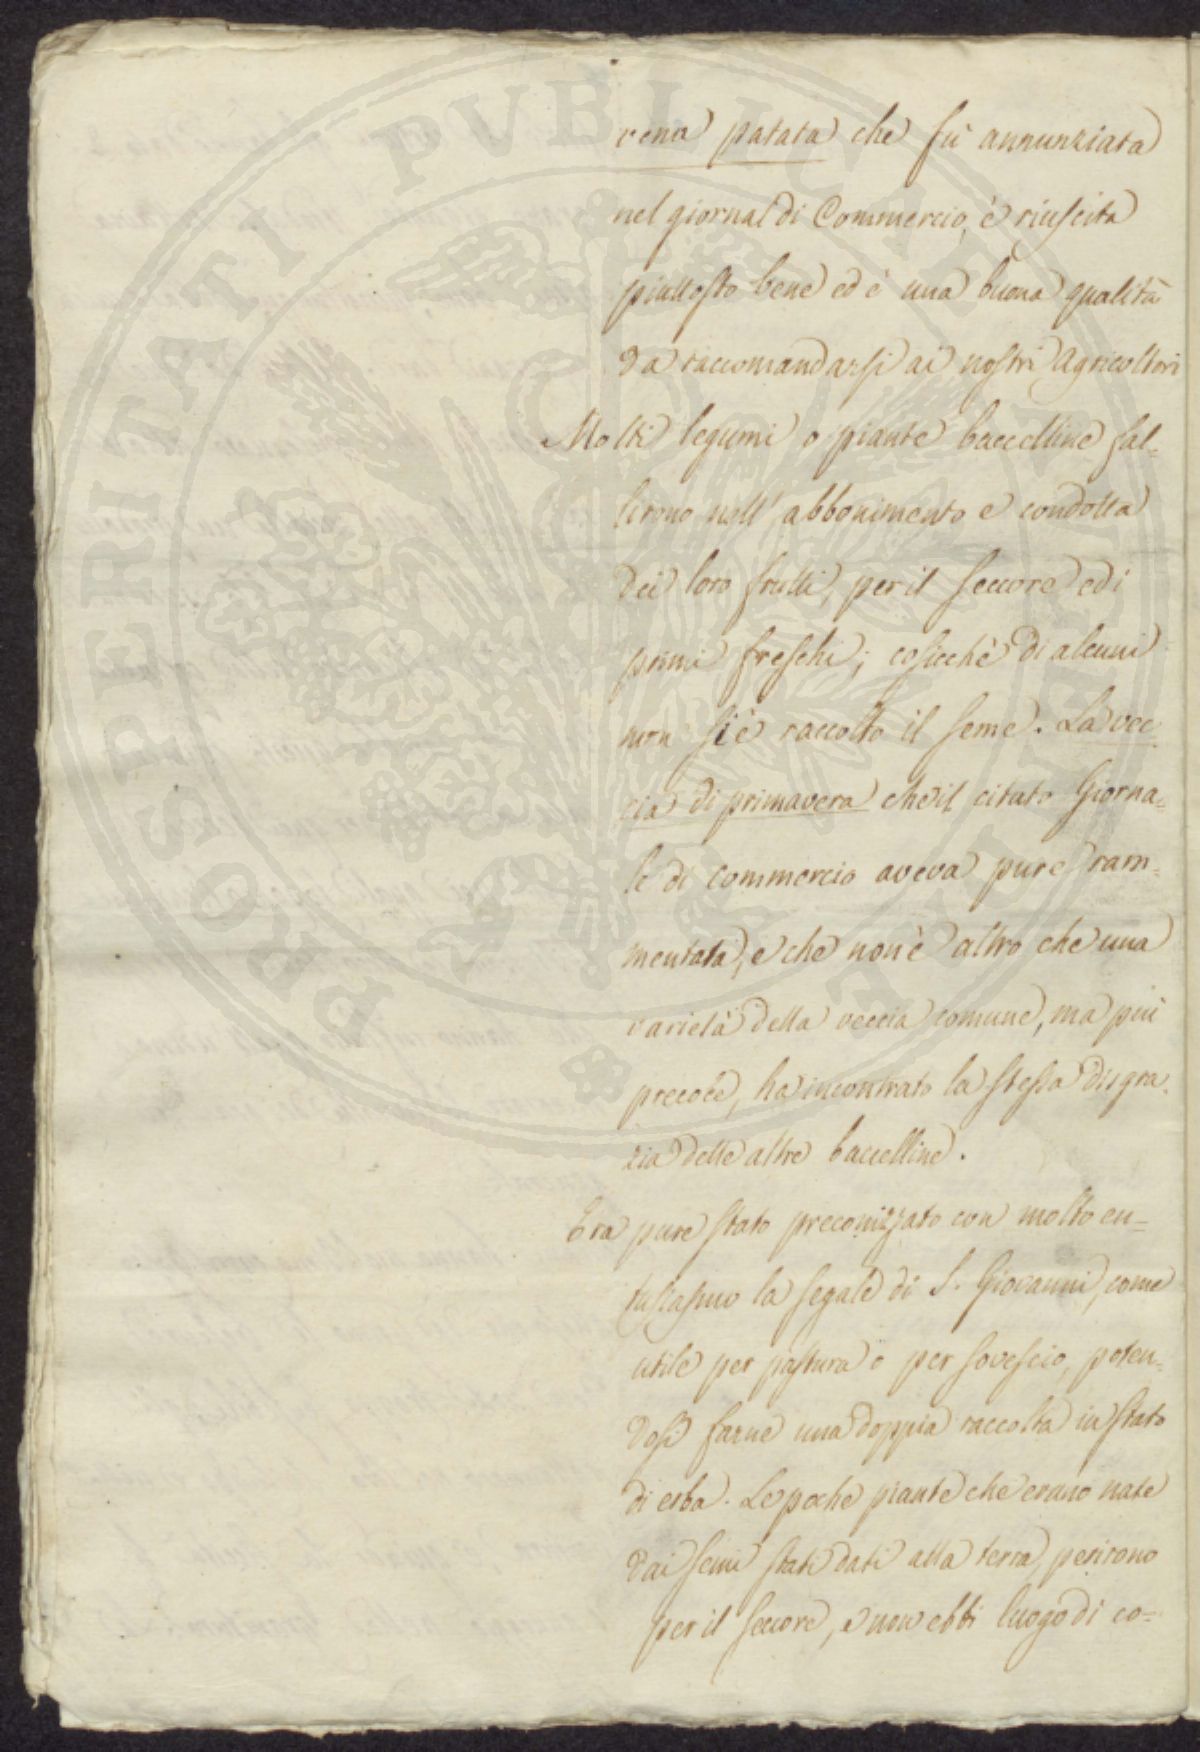 vena patata che fù annunziata
nel giornal di Commercio, è riuscita
piuttosto bene ed è una buona qualità
da raccomandarsi ai nostri Agricoltori
Molti legumi o piante baccelline fal-
lirono nell' abbonimento e condotta
dei loro frutti, per il seccore ed i
primi freschi; cosicchè di alcuni
non si è raccolto il seme. La vec
cia di primavera che il citato Giorna=
le di commercio aveva pure ram-
mentata, e che non è altro che una
varietà della veccia comune, ma più
precoce, ha incontrato la stessa disgra-
zia delle altre baccelline.
Era pure stato preconizzato con molto en-
tusiasmo la segale di S. Giovanni, come
utile per pastura o per sovescio, poten=
dosi farne una doppia raccolta in stato
di erba. Le poche piante che erano nate
dai semi stati dati alla terra, perirono
per il seccore, e non ebbi luogo di co=
PROSPERITATI PUBLICAE